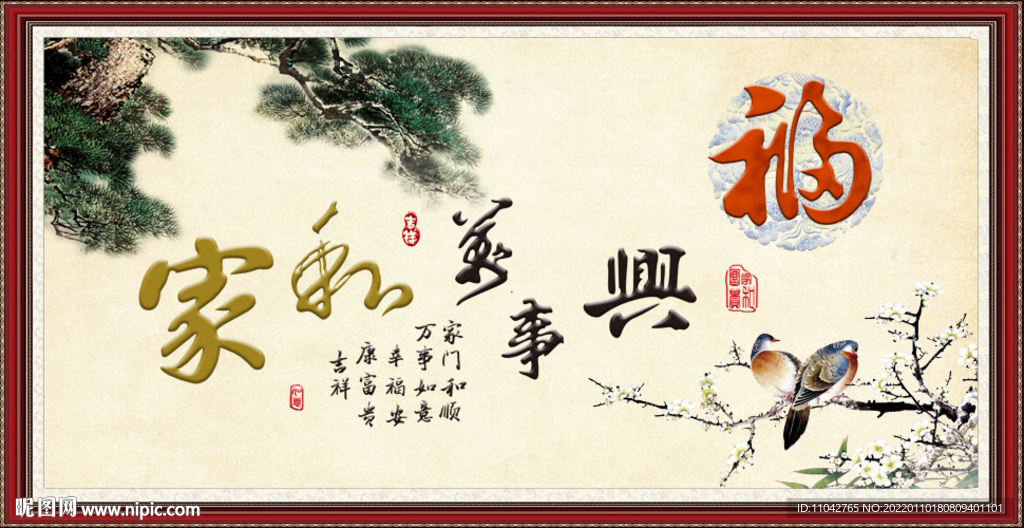 福
家和萬事興
吉祥
富貴家和
家门和顺
万事如意
幸福安
康富贵
吉祥
如意
昵图网 www.nipic.com
ID:11042765 NO:20220110180809401101